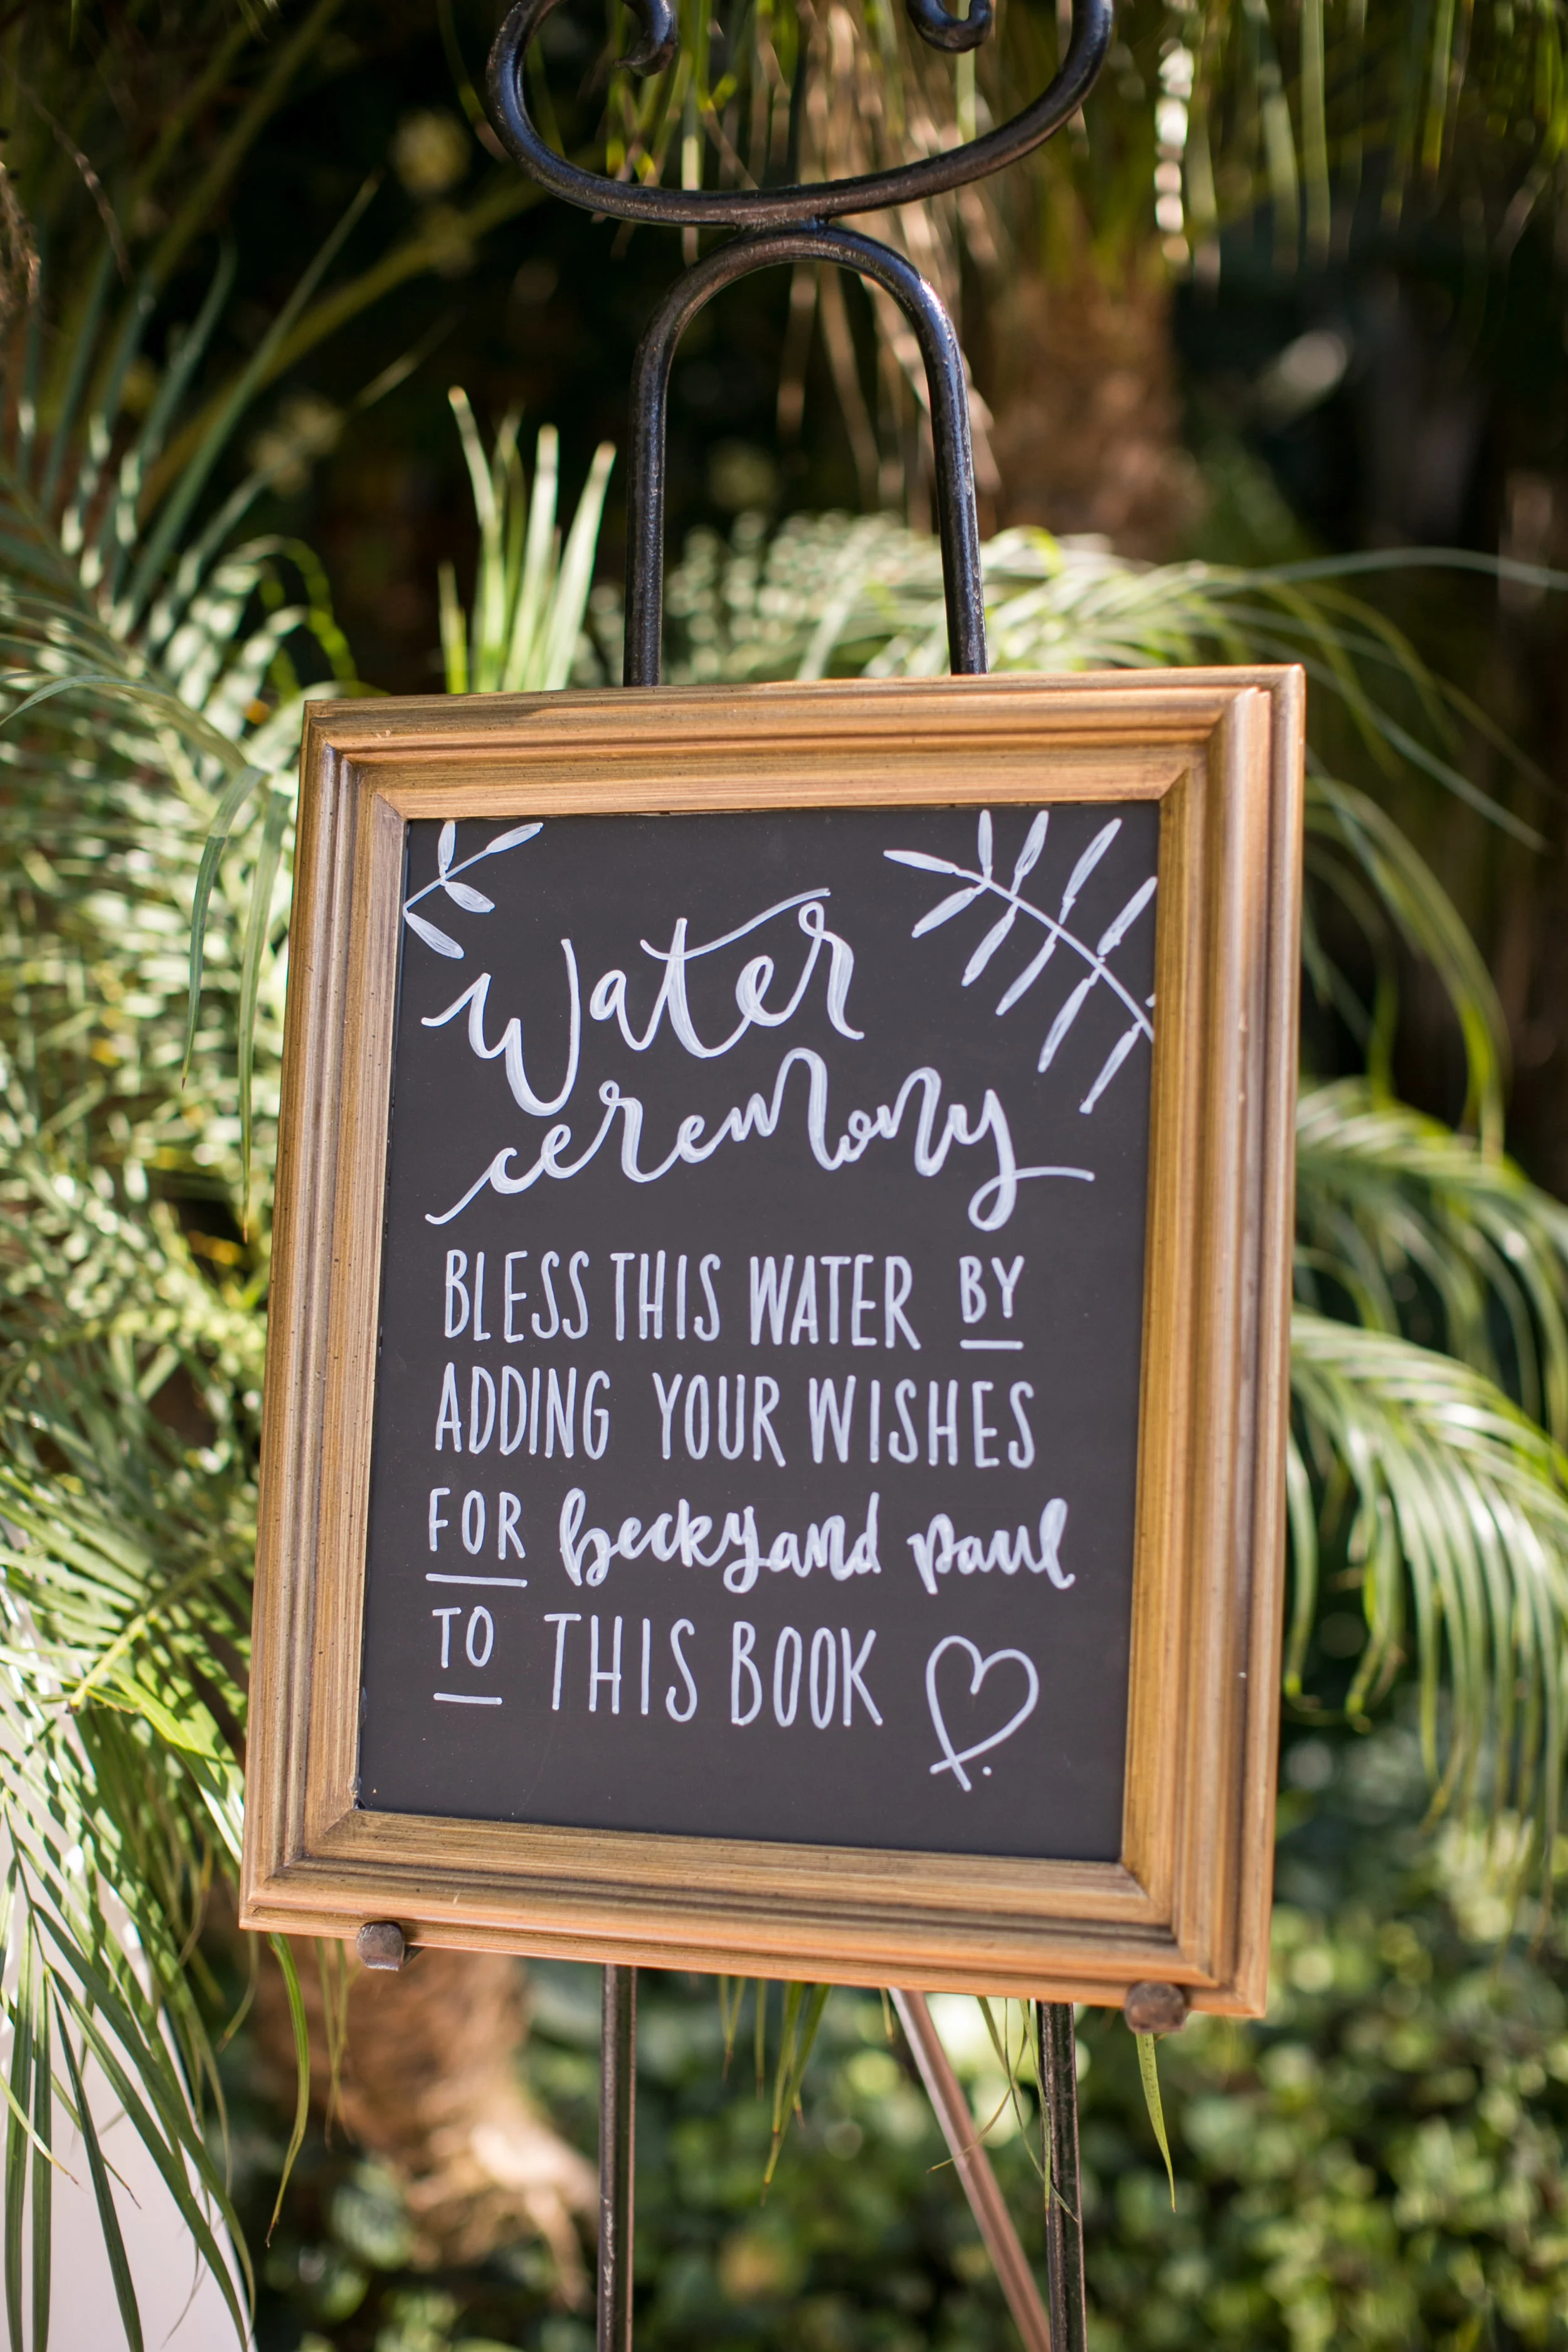 Water
ceremony
BLESS THIS WATER BY
ADDING YOUR WISHES
FOR becky and paul
TO THIS BOOK